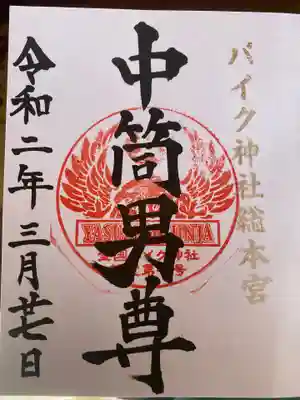 バイク神社総本宮
中筒男尊
令和二年三月廿七日
YASU
INJA